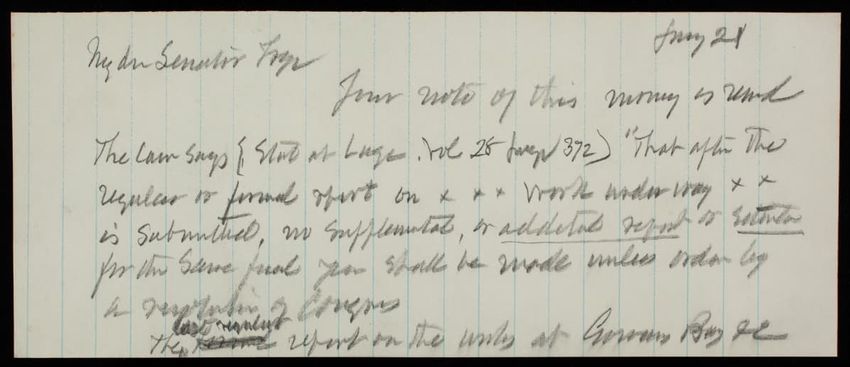 Jany 21
My dr Senator Frye
Your note of this morng is recd
The law says (Stat at Large. Vol 28 page 372) "That after the
regular or formal report on x x x work under way x x
is submitted, no supplemental, or additnl report or estimate
for the same fiscal year shall be made unless order by
a resolution of Congress
last regular
The report on the works at Bay &c